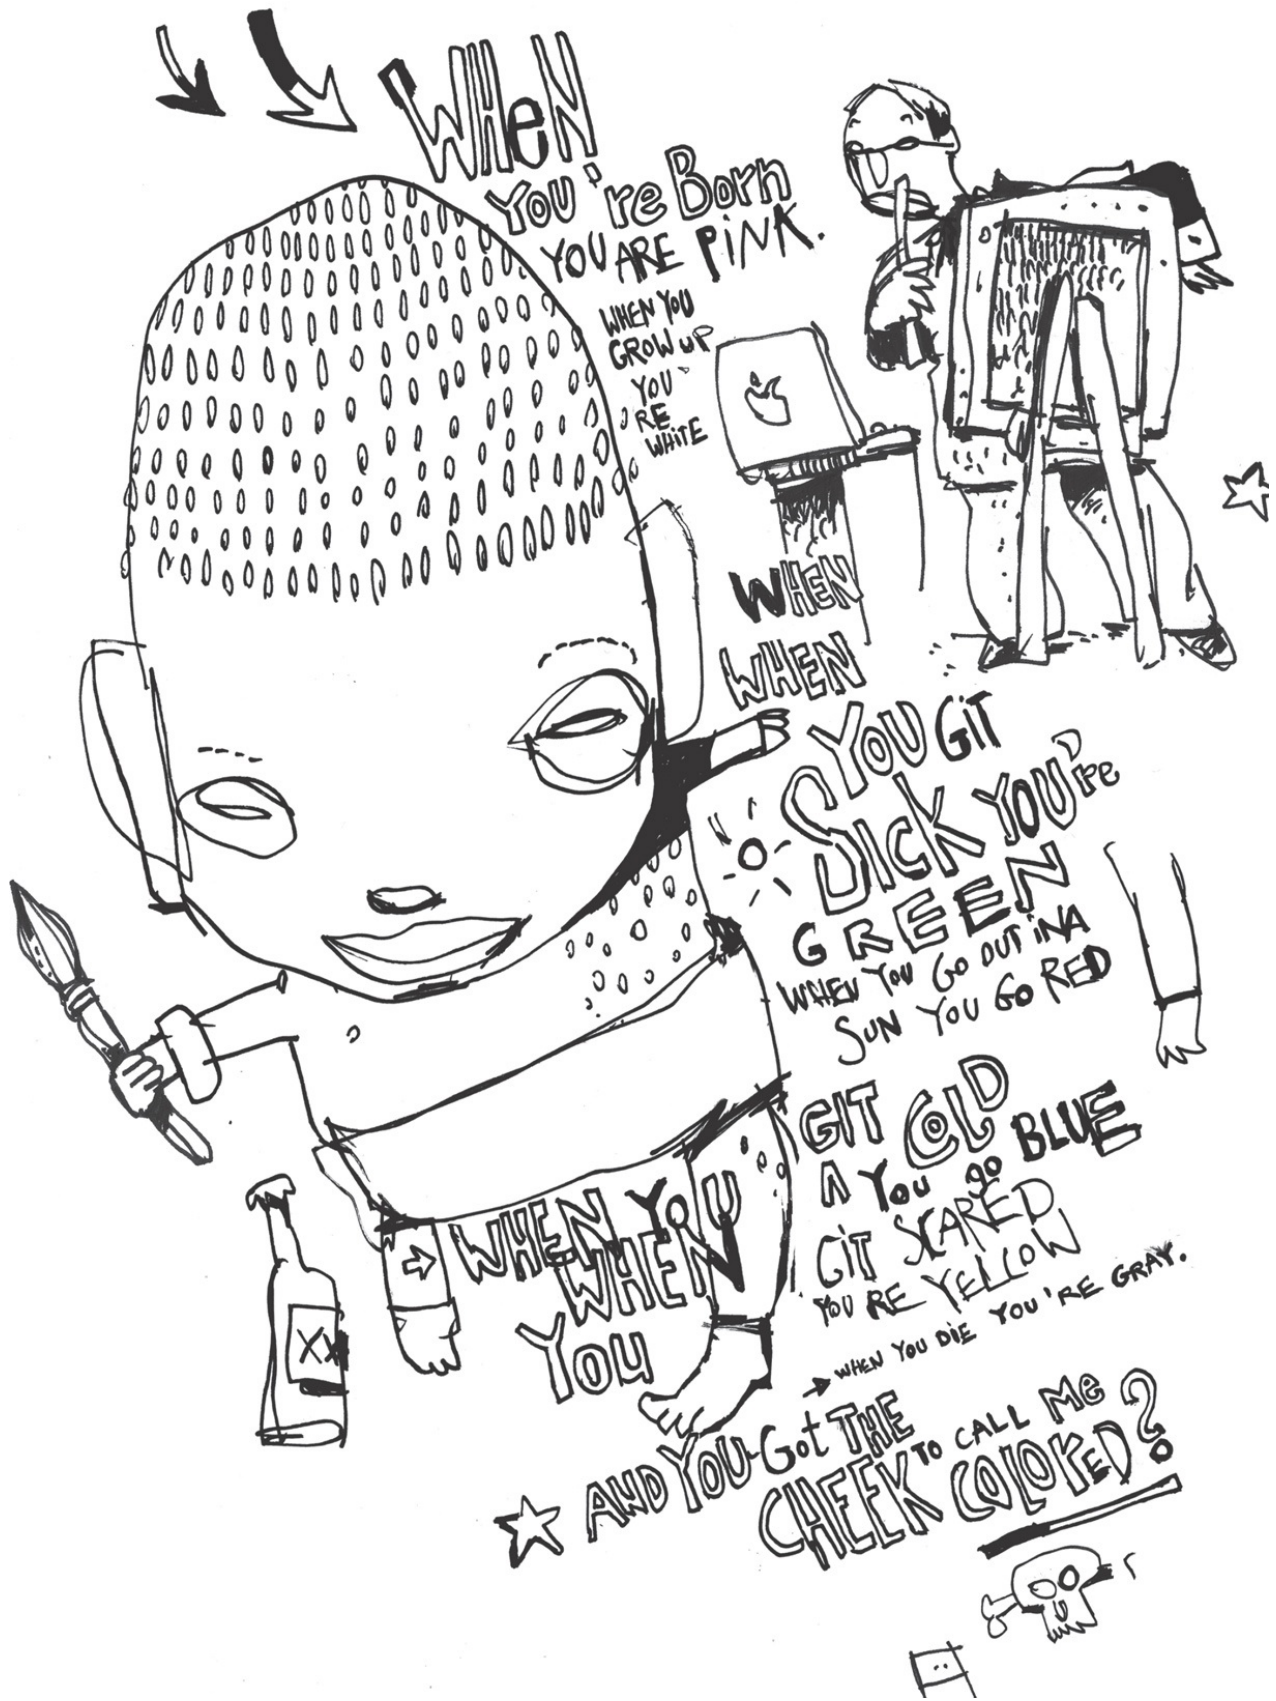 WHeN
YOU're Born
YOU ARE PiNK.
WHEN YOU
GROW UP
YOU'
RE
WHITE
WHEN
WHEN
YOU GiT
SICK YOU're
GREEN
WHEN YOU GO OUT iNA
SUN YOU GO RED
GIT COLD
A YOU go BLUE
GiT SCARED
YOU RE YELLOW
WHEN YOU DIE YOU'RE GRAY.
WHEN YOU
WHEN
YOU
XX
AND YOU Got THE
CHEEK TO CALL Me
COLORED?